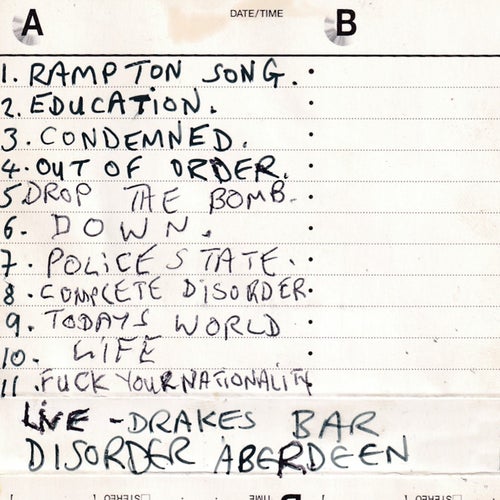 A DATE/TIME B
1. RAMPTON SONG.
2. EDUCATION.
3. CONDEMNED.
4. OUT OF ORDER.
5 DROP THE BOMB.
6. DOWN.
7. POLICE STATE.
8. COMPLETE DISORDER.
9. TODAYS WORLD
10. LIFE
11. FUCK YOUR NATIONALITY
LIVE - DRAKES BAR
DISORDER ABERDEEN
STEREO TIME STEREO